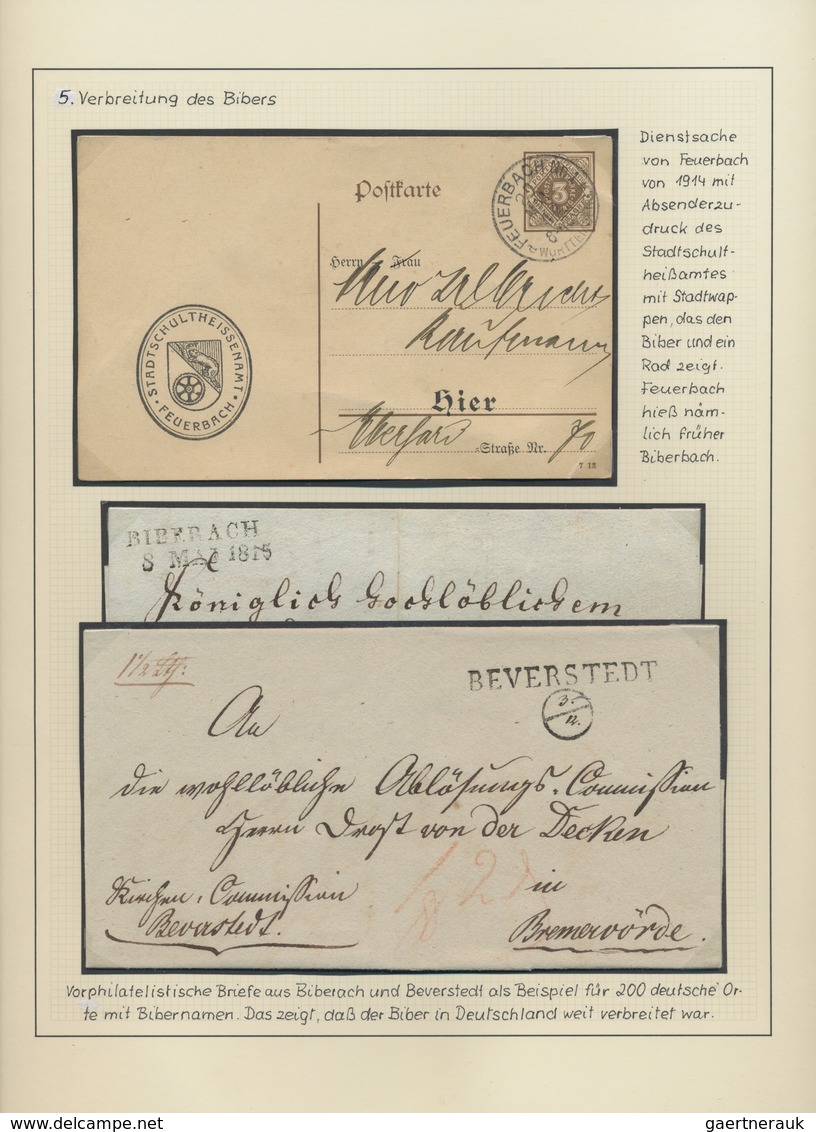 5. Verbreitung des Bibers
Postkarte
3
FEUERBACH
WÜRTT
Herrn Frau
Albrecht
Kaufmann
Hier
Eberhard -Straße Nr. 70
7 13
STADTSCHULTHEISSENAMT
FEUERBACH
Dienstsache
von Feuerbach
von 1914 mit
Absenderzu-
druck des
Stadtschult-
heißamtes
mit Stadtwap-
pen, das den
Biber und ein
Rad zeigt.
Feuerbach
hieß näm-
lich früher
Biberbach.
BIBERACH
8 MAI 1815
Königlich hochlöblichem
BEVERSTEDT
3.
12.
An
die wohllöbliche Ablösungs-Commission
Herrn Drost von der Decken
Kirchen-Commission
in
Beverstedt.
Bremervörde.
Vorphilatelistische Briefe aus Biberach und Beverstedt als Beispiel für 200 deutsche Or-
te mit Bibernamen. Das zeigt, daß der Biber in Deutschland weit verbreitet war.
www.delcampe.net
gaertnerauk